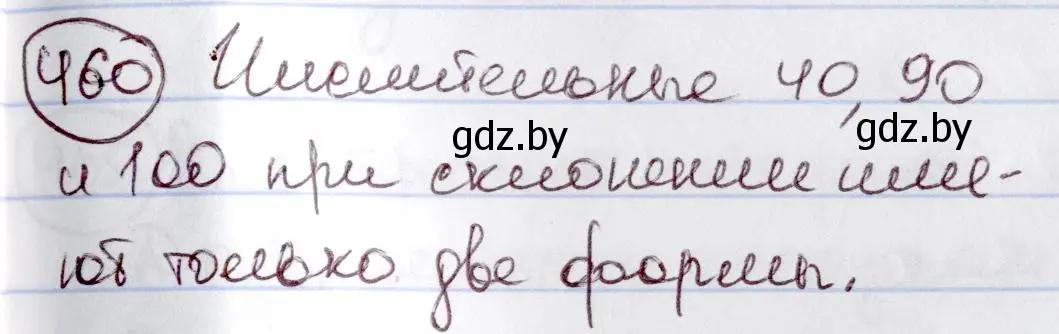 460 Числительные 40, 90
gdz.by gdz.by
и 100 при склонении име-
ют только две формы.